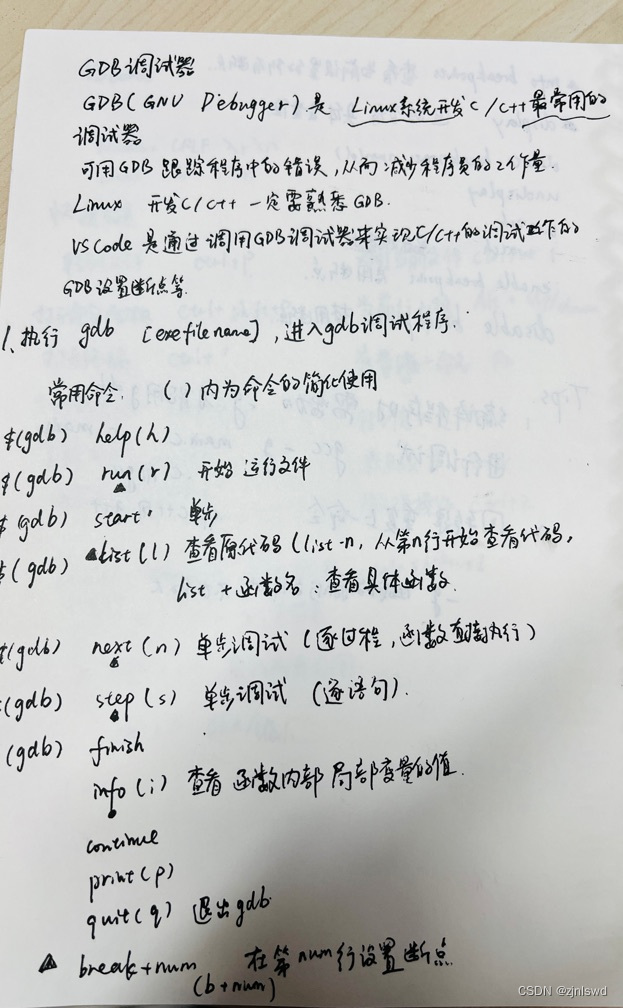 GDB调试器
GDB(GNU Debugger)是 Linux系统开发C/C++最常用的
调试器
可用GDB 跟踪程序中的错误,从而减少程序员的工作量.
Linux 开发C/C++ 一定要熟悉GDB.
VSCode 是通过调用GDB调试器来实现C/C++的调试工作的
GDB设置断点等.
1、执行 gdb [exefilename],进入gdb调试程序.
常用命令. ( )内为命令的简化使用
$(gdb) help(h)
$(gdb) run(r) 开始运行文件
$(gdb) start 单步
$(gdb) ▲list(l) 查看原代码(list-n, 从第n行开始查看代码,
list + 函数名: 查看具体函数.
$(gdb) next(n) 单步调试(逐过程,函数直接执行)
$(gdb) step(s) 单步调试 (逐语句).
(gdb) finish
info(i) 查看函数内部局部变量的值.
continue
print(p)
quit(q) 退出gdb
▲ break+num 在第num行设置断点
(b+num)
CSDN @zjnlswd